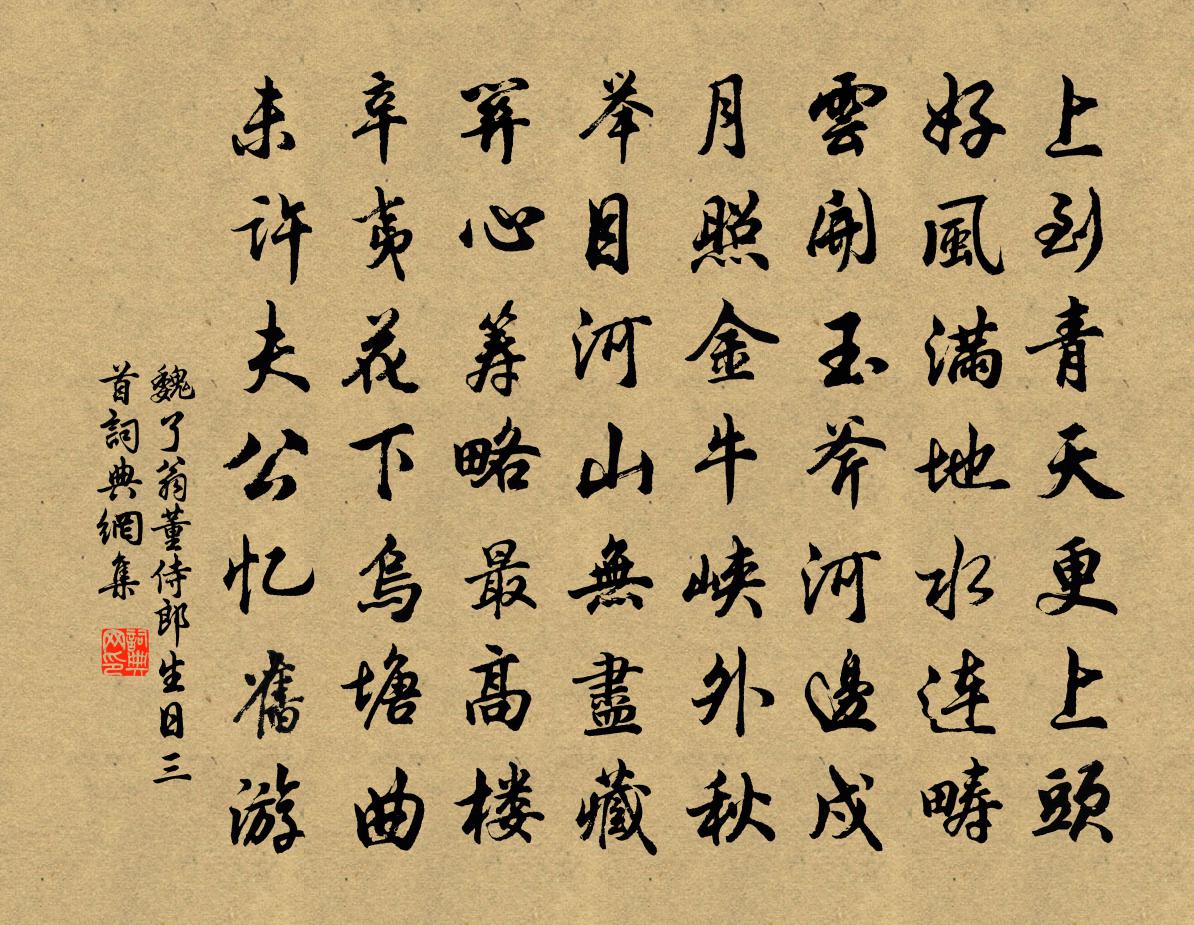 上到青天更上頭
好風滿地水连疇
雲開玉斧河邊戍
月照金牛峡外秋
举目河山無盡藏
筭心筹略最高楼
辛夷花下烏塘曲
未许夫公忆舊游
魏了翁董侍郎生日三
首詞典網集
詞典网印